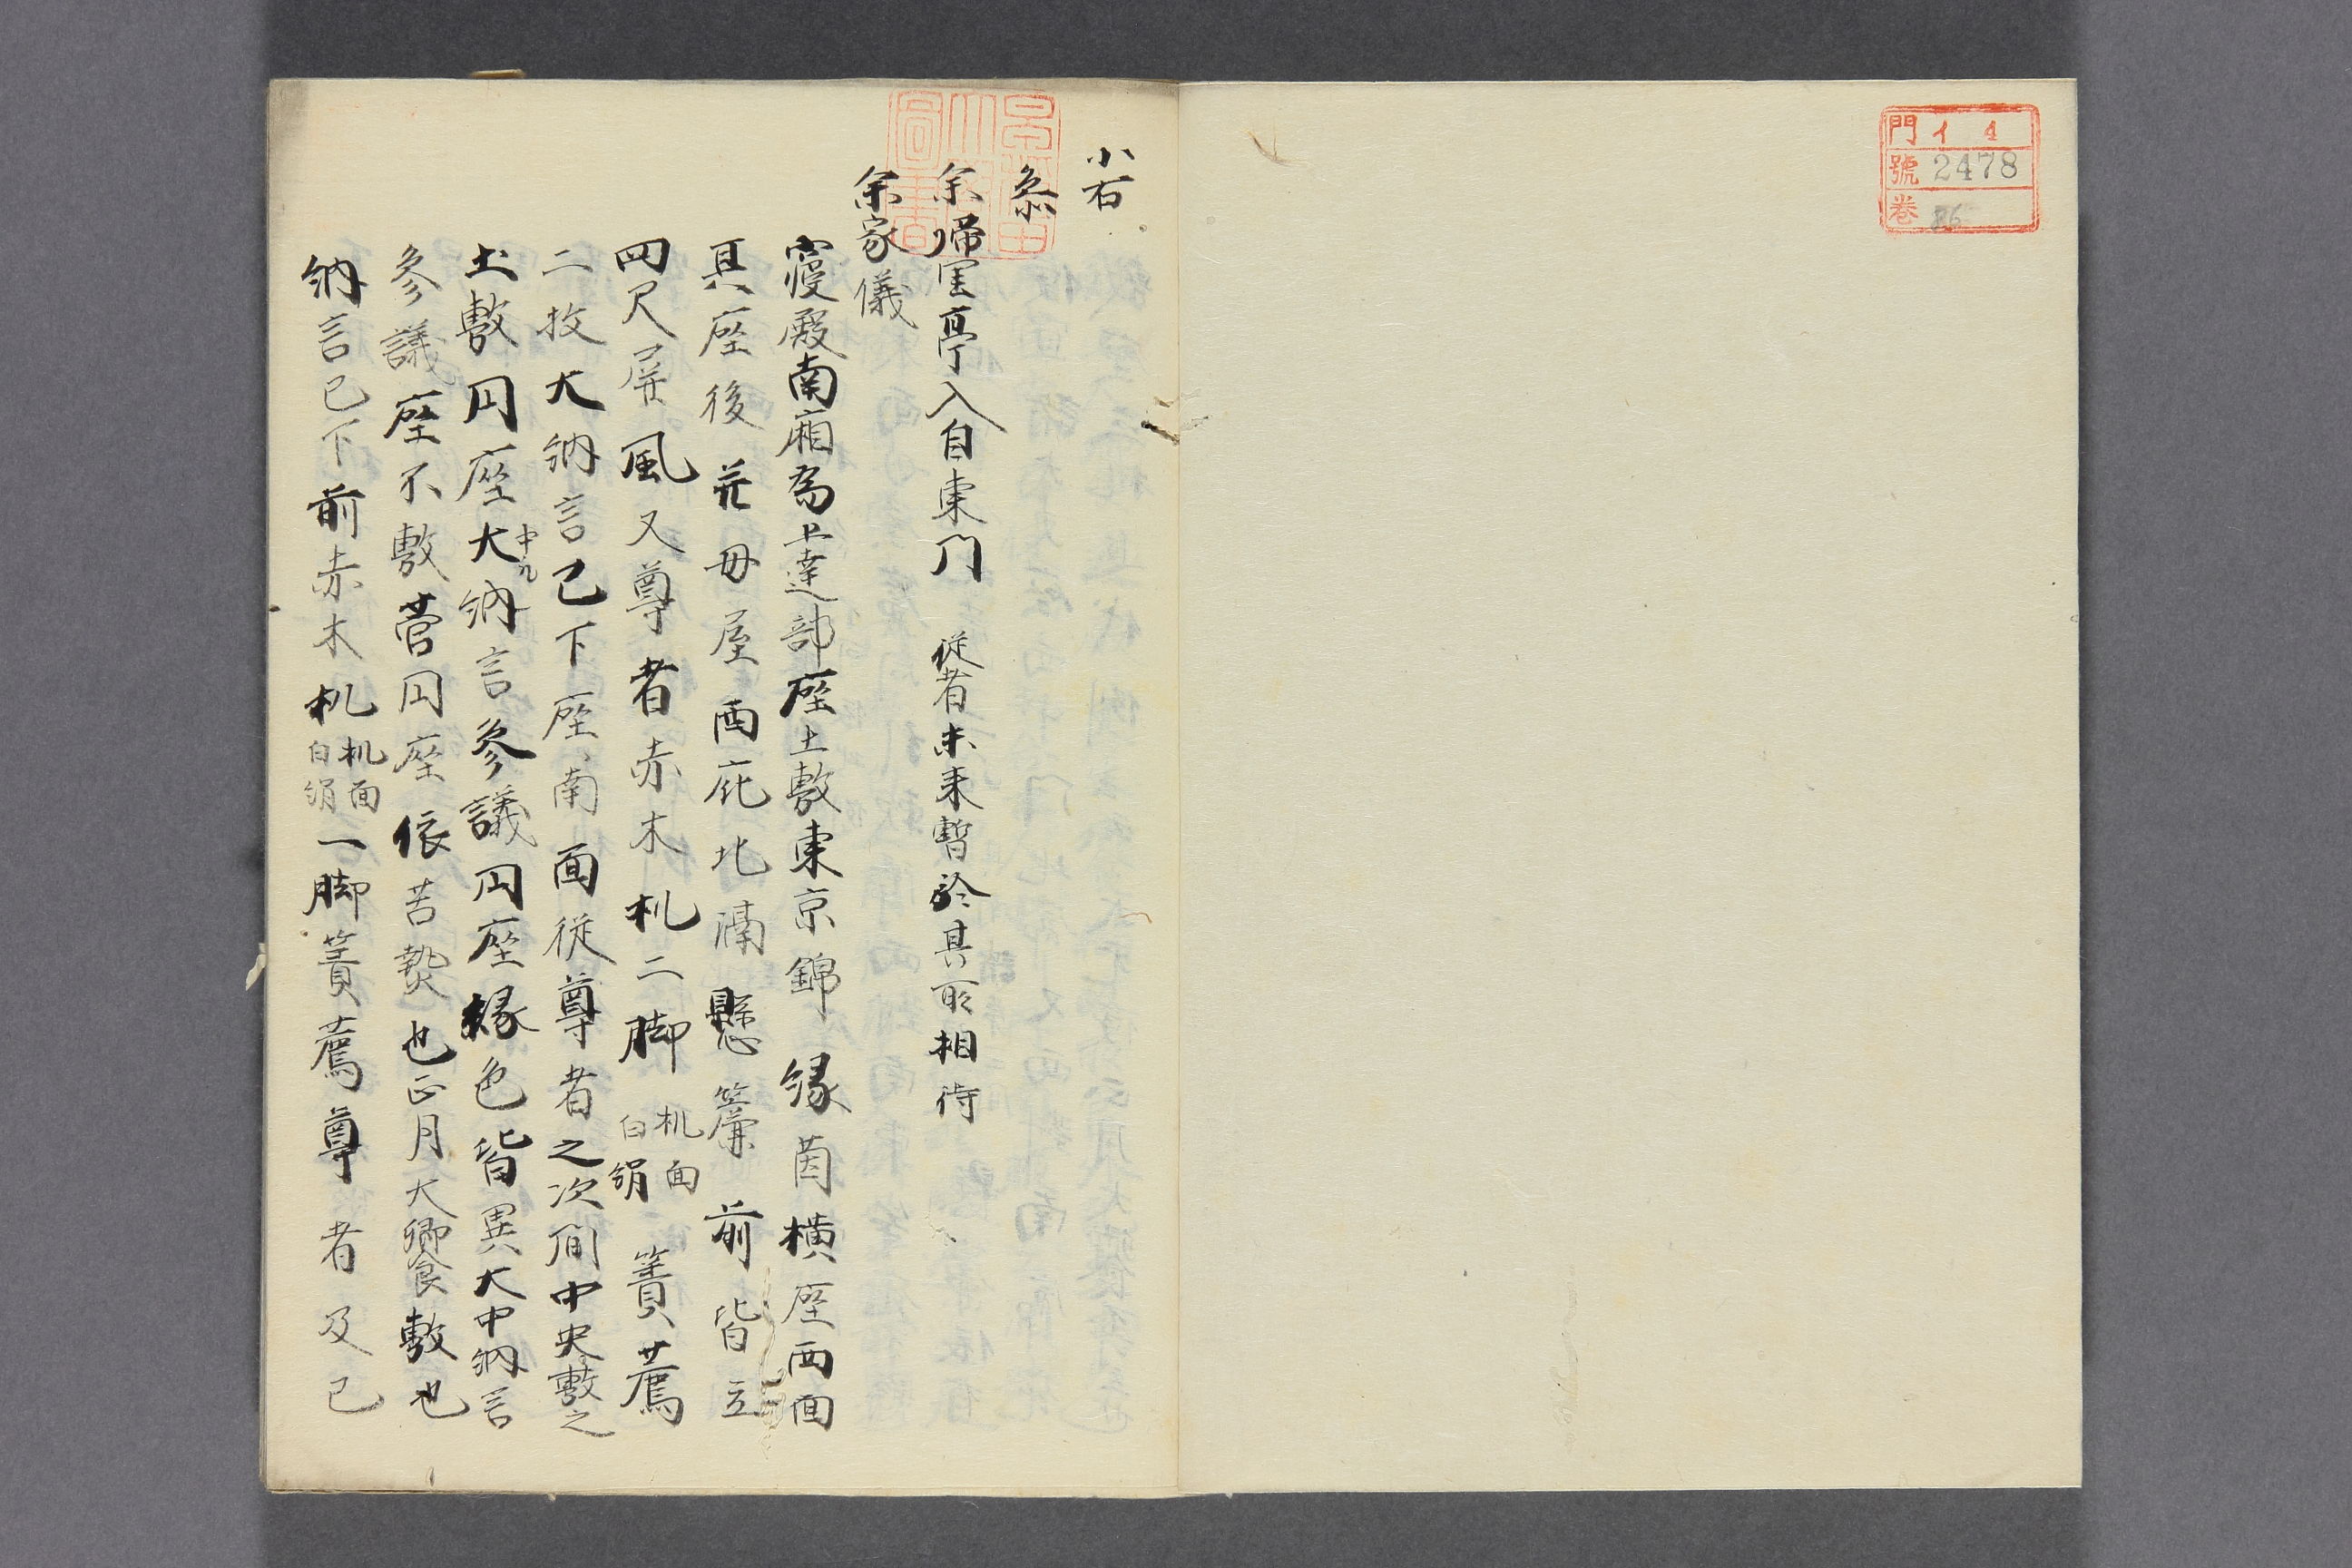 門 イ 4
號 2478
巻 86
小右
糸
余帰里亭入自東門 従者未来暫於其所相待
余家儀
寝殿南廂為上達部座土敷東京錦縁茵横座西面
其座後并母屋西庇北隔懸簾前皆立
四尺屏風又尊者赤木机二脚 机面白絹 簀薦
二枚大納言已下座南面従尊者之次間中央敷之
土敷円座大中九納言参議円座縁色皆異大中納言
参議座不敷菅円座依苦熱也正月大饗敷也
納言已下前赤木机 机面白絹 一脚簀薦尊者及已